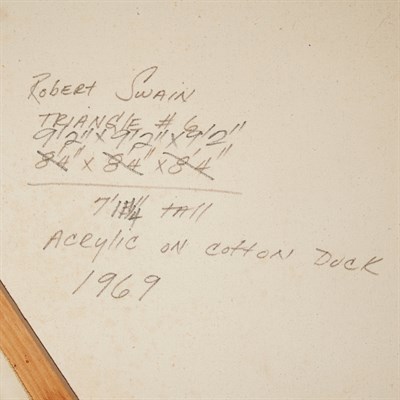 Robert Swain
TRIANGLE # 6
9'2" x 9'2" x 9'2"
8'4" x 8'4" x 8'4"
7' tall
Acrylic on cotton Duck
1969